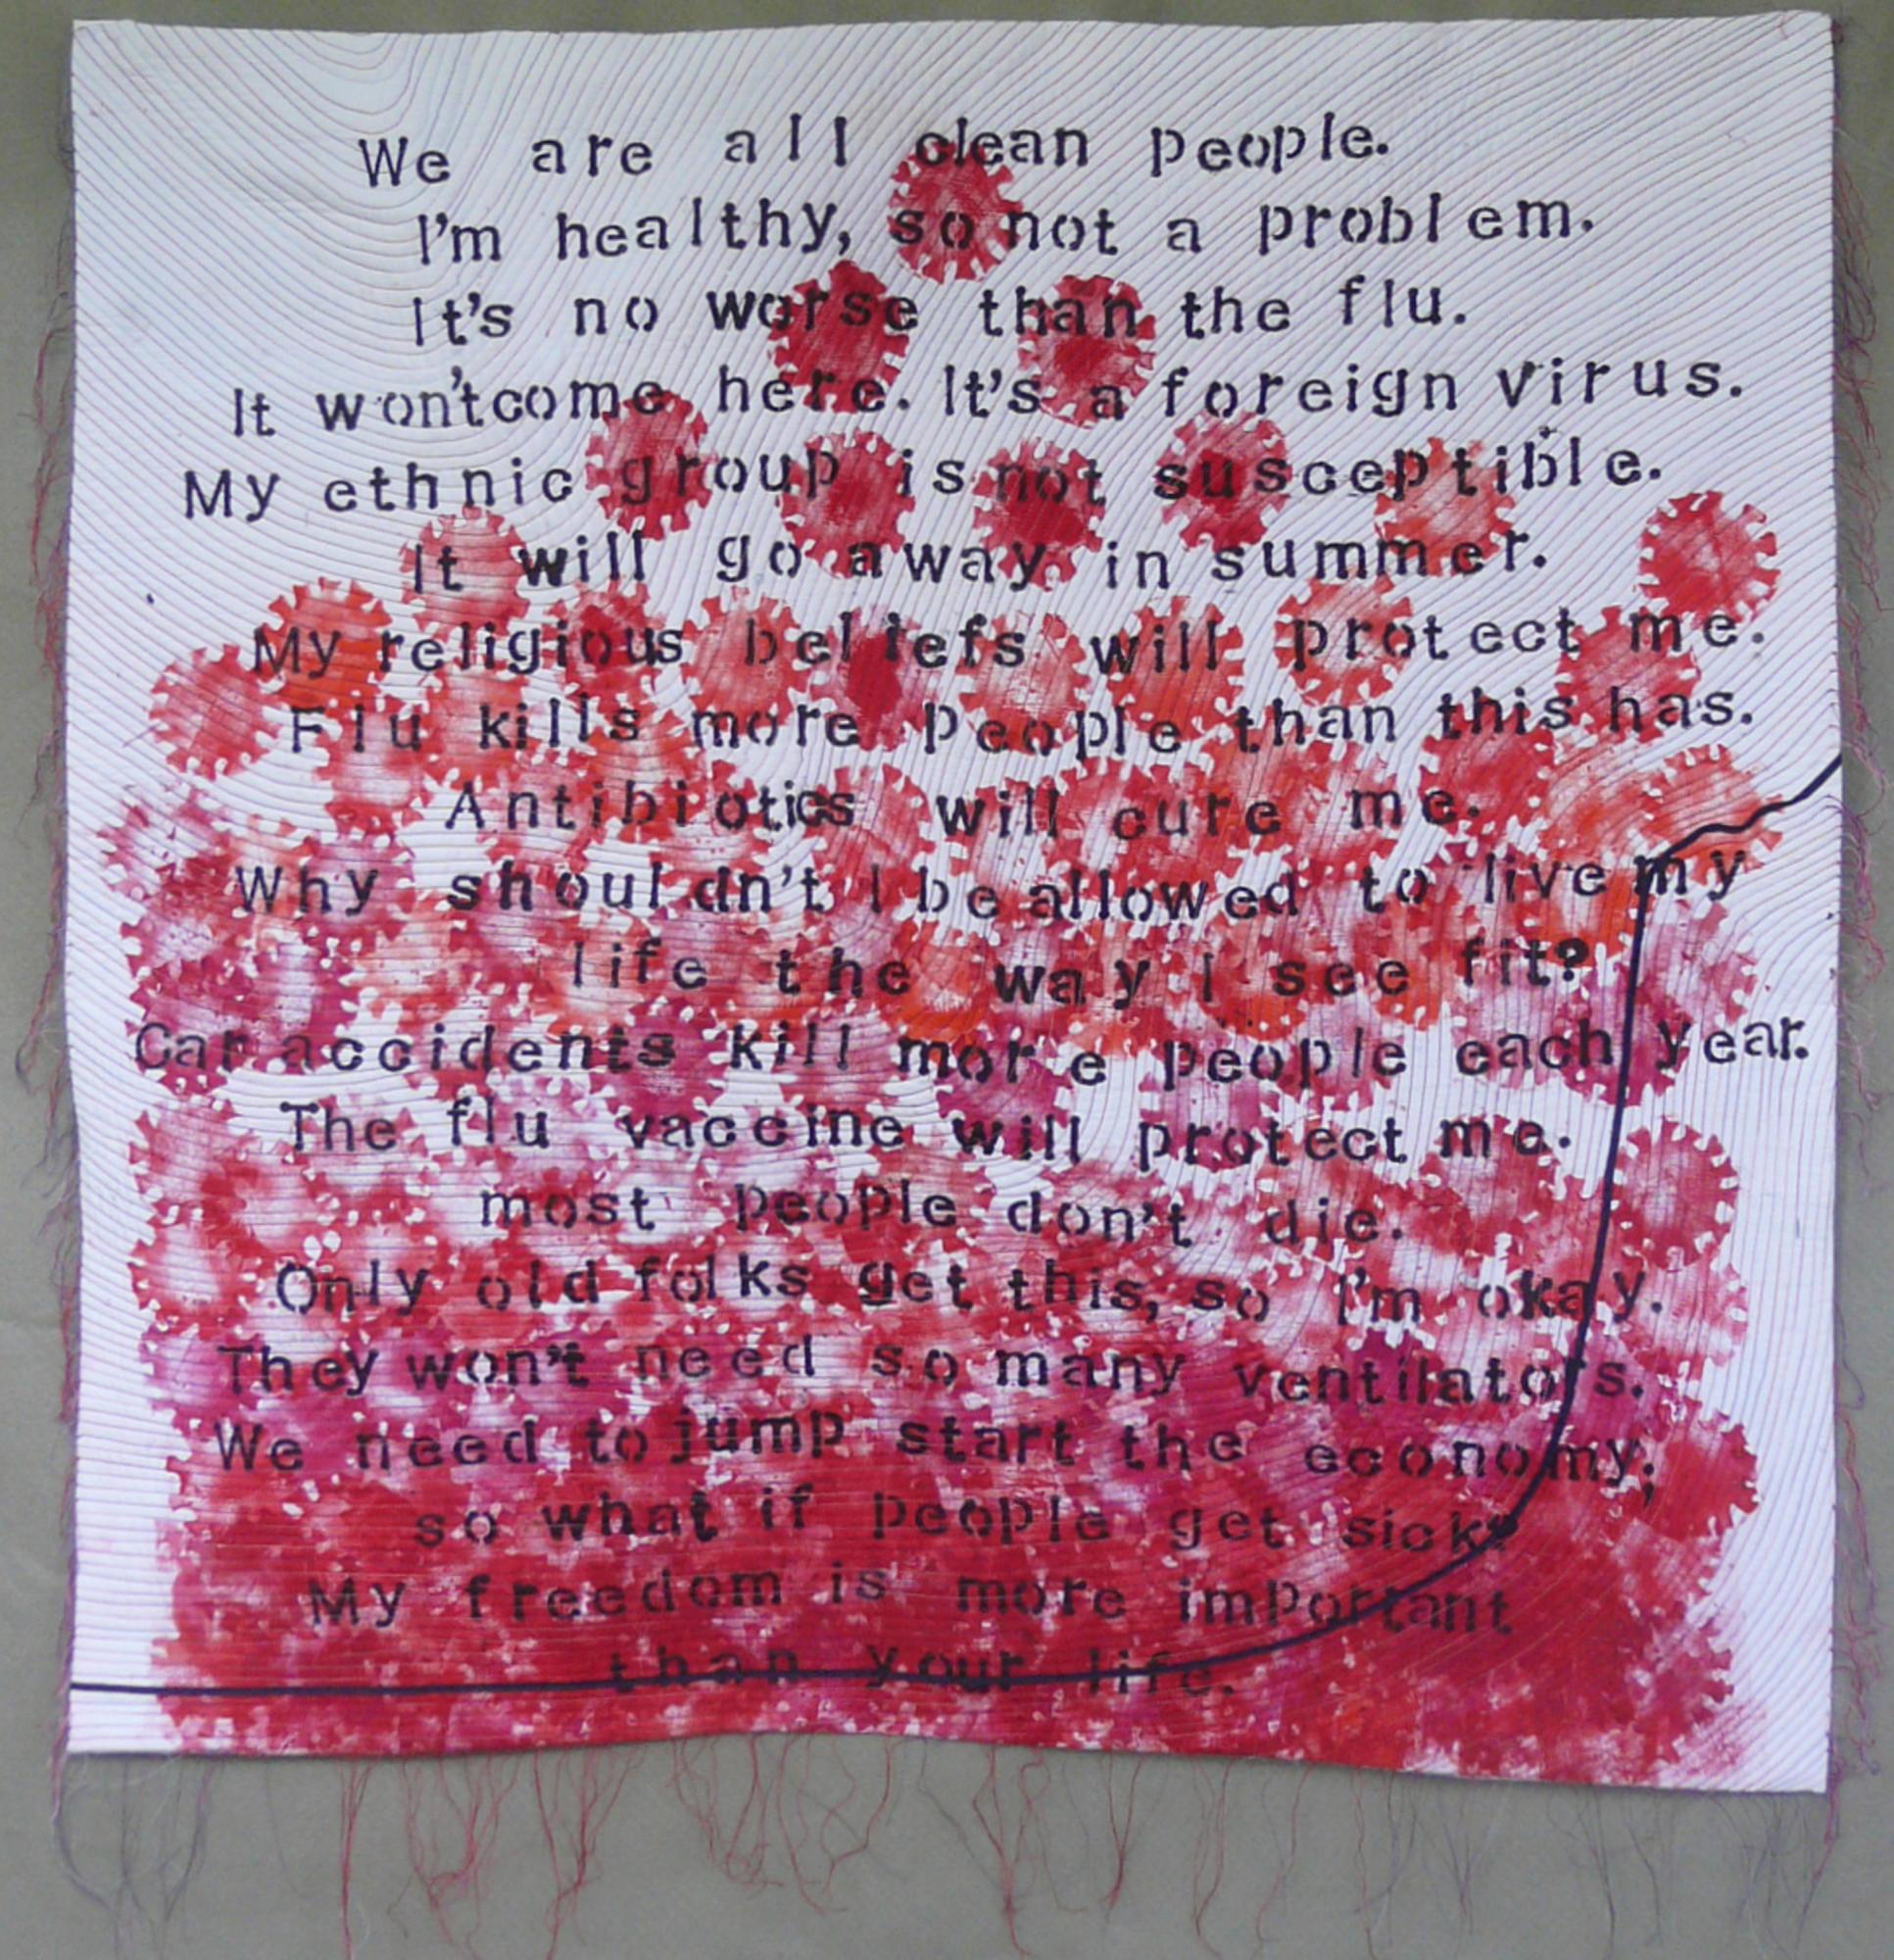 We are all clean people.
I'm healthy, so not a problem.
It's no worse than the flu.
It won't come here. It's a foreign virus.
My ethnic group is not susceptible.
It will go away in summer.
My religious beliefs will protect me.
Flu kills more people than this has.
Antibiotics will cure me.
Why shouldn't I be allowed to live my
life the way I see fit?
Car accidents kill more people each year.
The flu vaccine will protect me.
most people don't die.
Only old folks get this, so I'm okay.
They won't need so many ventilators.
We need to jump start the economy;
so what if people get sick?
My freedom is more important
than your life.